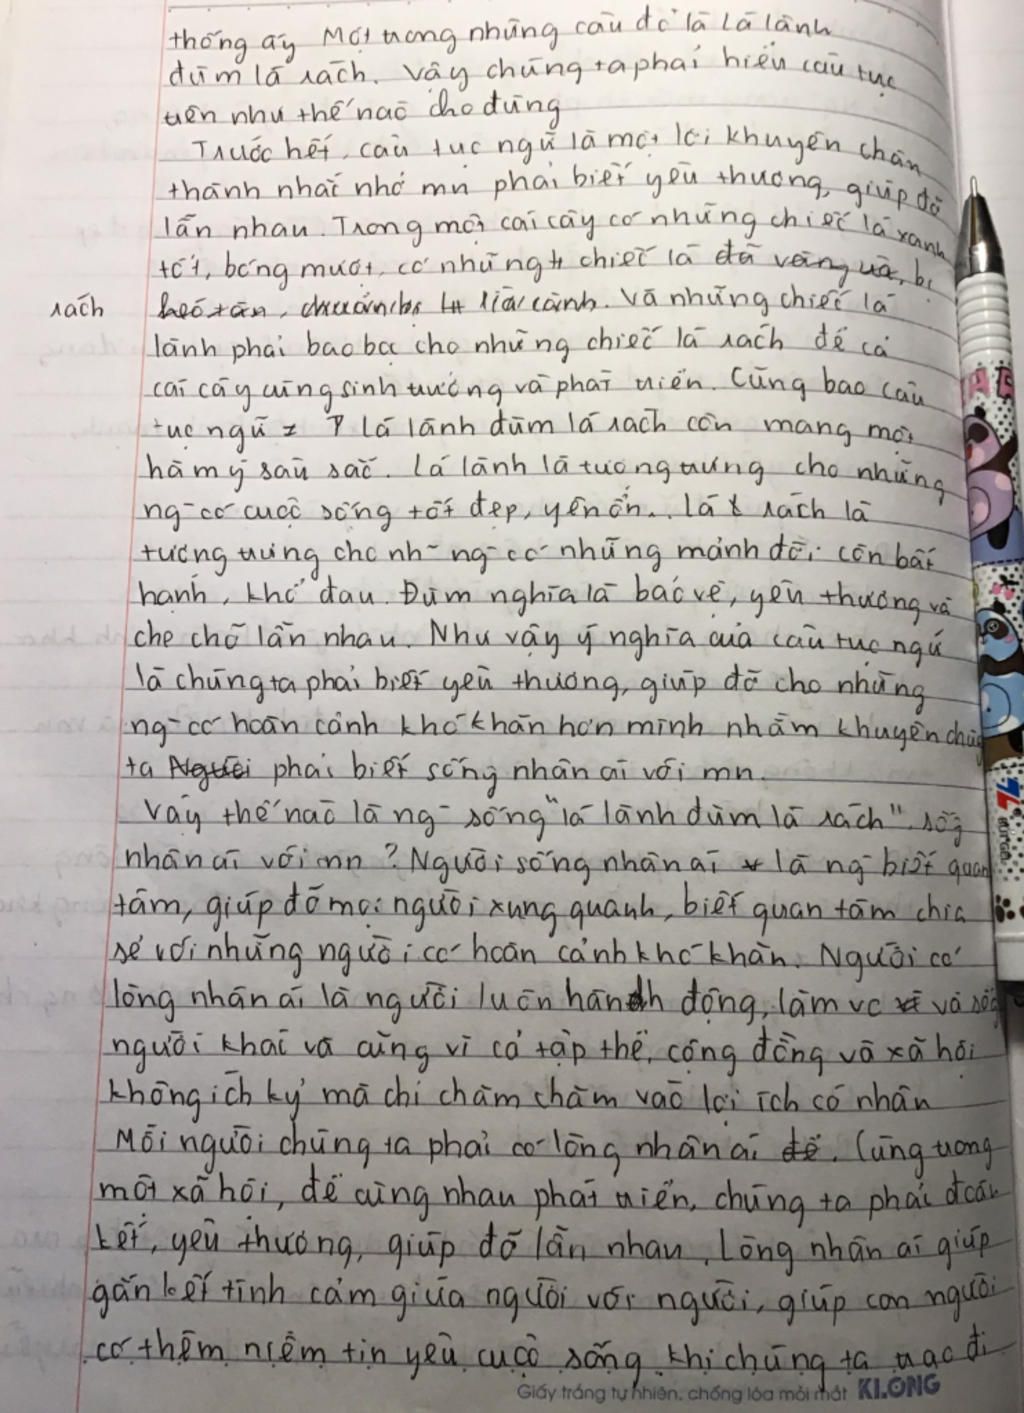 thống ấy Một trong những câu đó là Lá lành
đùm lá rách. Vậy chúng ta phải hiểu câu tục
trên như thế nào cho đúng
Trước hết, câu tục ngữ là một lời khuyên chân
thành nhắc nhở mn phải biết yêu thương, giúp đỡ
lẫn nhau. Trong một cái cây có những chiếc lá xanh
tốt, bóng mượt, có những chiếc lá đã vàng úa, bị
rách
lìa cành. Và những chiếc lá
lành phải bao bọc cho những chiếc lá rách để cả
cái cây cùng sinh trưởng và phát triển. Cũng bao câu
tục ngữ ≠ Lá lành đùm lá rách còn mang một
hàm ý sâu sắc. Lá lành là tượng trưng cho những
ng- có cuộc sống tốt đẹp, yên ổn.. lá rách là
tượng trưng cho nh- ng- có những mảnh đời còn bất
hạnh, khổ đau. Đùm nghĩa là bảo vệ, yêu thương và
che chở lẫn nhau. Như vậy ý nghĩa của câu tục ngữ
là chúng ta phải biết yêu thương, giúp đỡ cho những
ng- có hoàn cảnh khó khăn hơn mình nhằm khuyên chúng
ta Người phải biết sống nhân ái với mn.
Vậy thế nào là ng- sống "lá lành đùm lá rách". sống
nhân ái với mn? Người sống nhân ái là ng- biết quan
tâm, giúp đỡ mọi người xung quanh, biết quan tâm chia
sẻ với những người có hoàn cảnh khó khăn. Người có
lòng nhân ái là người luôn hành động, làm vc và sống
người khác và cũng vì cả tập thể, cộng đồng và xã hội
không ích kỷ mà chỉ chăm chăm vào lợi ích cá nhân
Mỗi người chúng ta phải có lòng nhân ái để. Cùng trong
một xã hội, để cùng nhau phát triển, chúng ta phải đoàn
kết, yêu thương, giúp đỡ lẫn nhau. Lòng nhân ái giúp
gắn kết tình cảm giữa người với người, giúp con người
có thêm niềm tin yêu cuộc sống khi chúng ta trao đi
Giấy trắng tự nhiên, chống lóa mỏi mắt KLONG